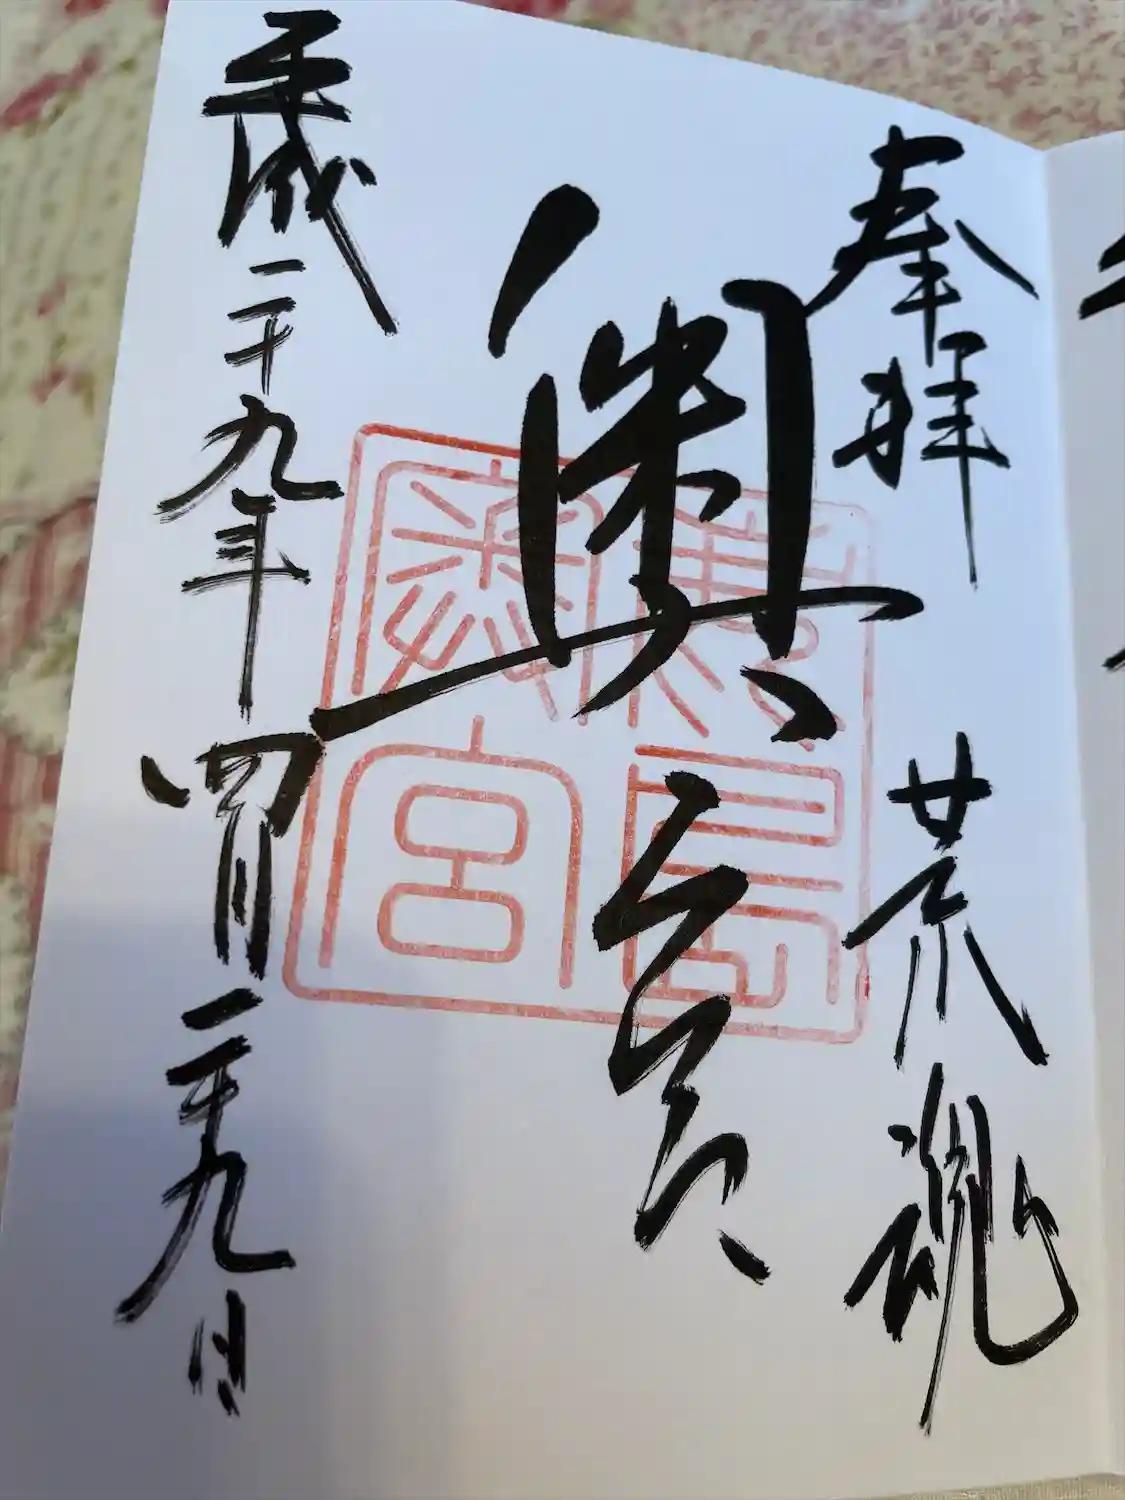 奉拝 荒魂
奧宮
平成二十九年四月二十九日
鹿島
奧宮